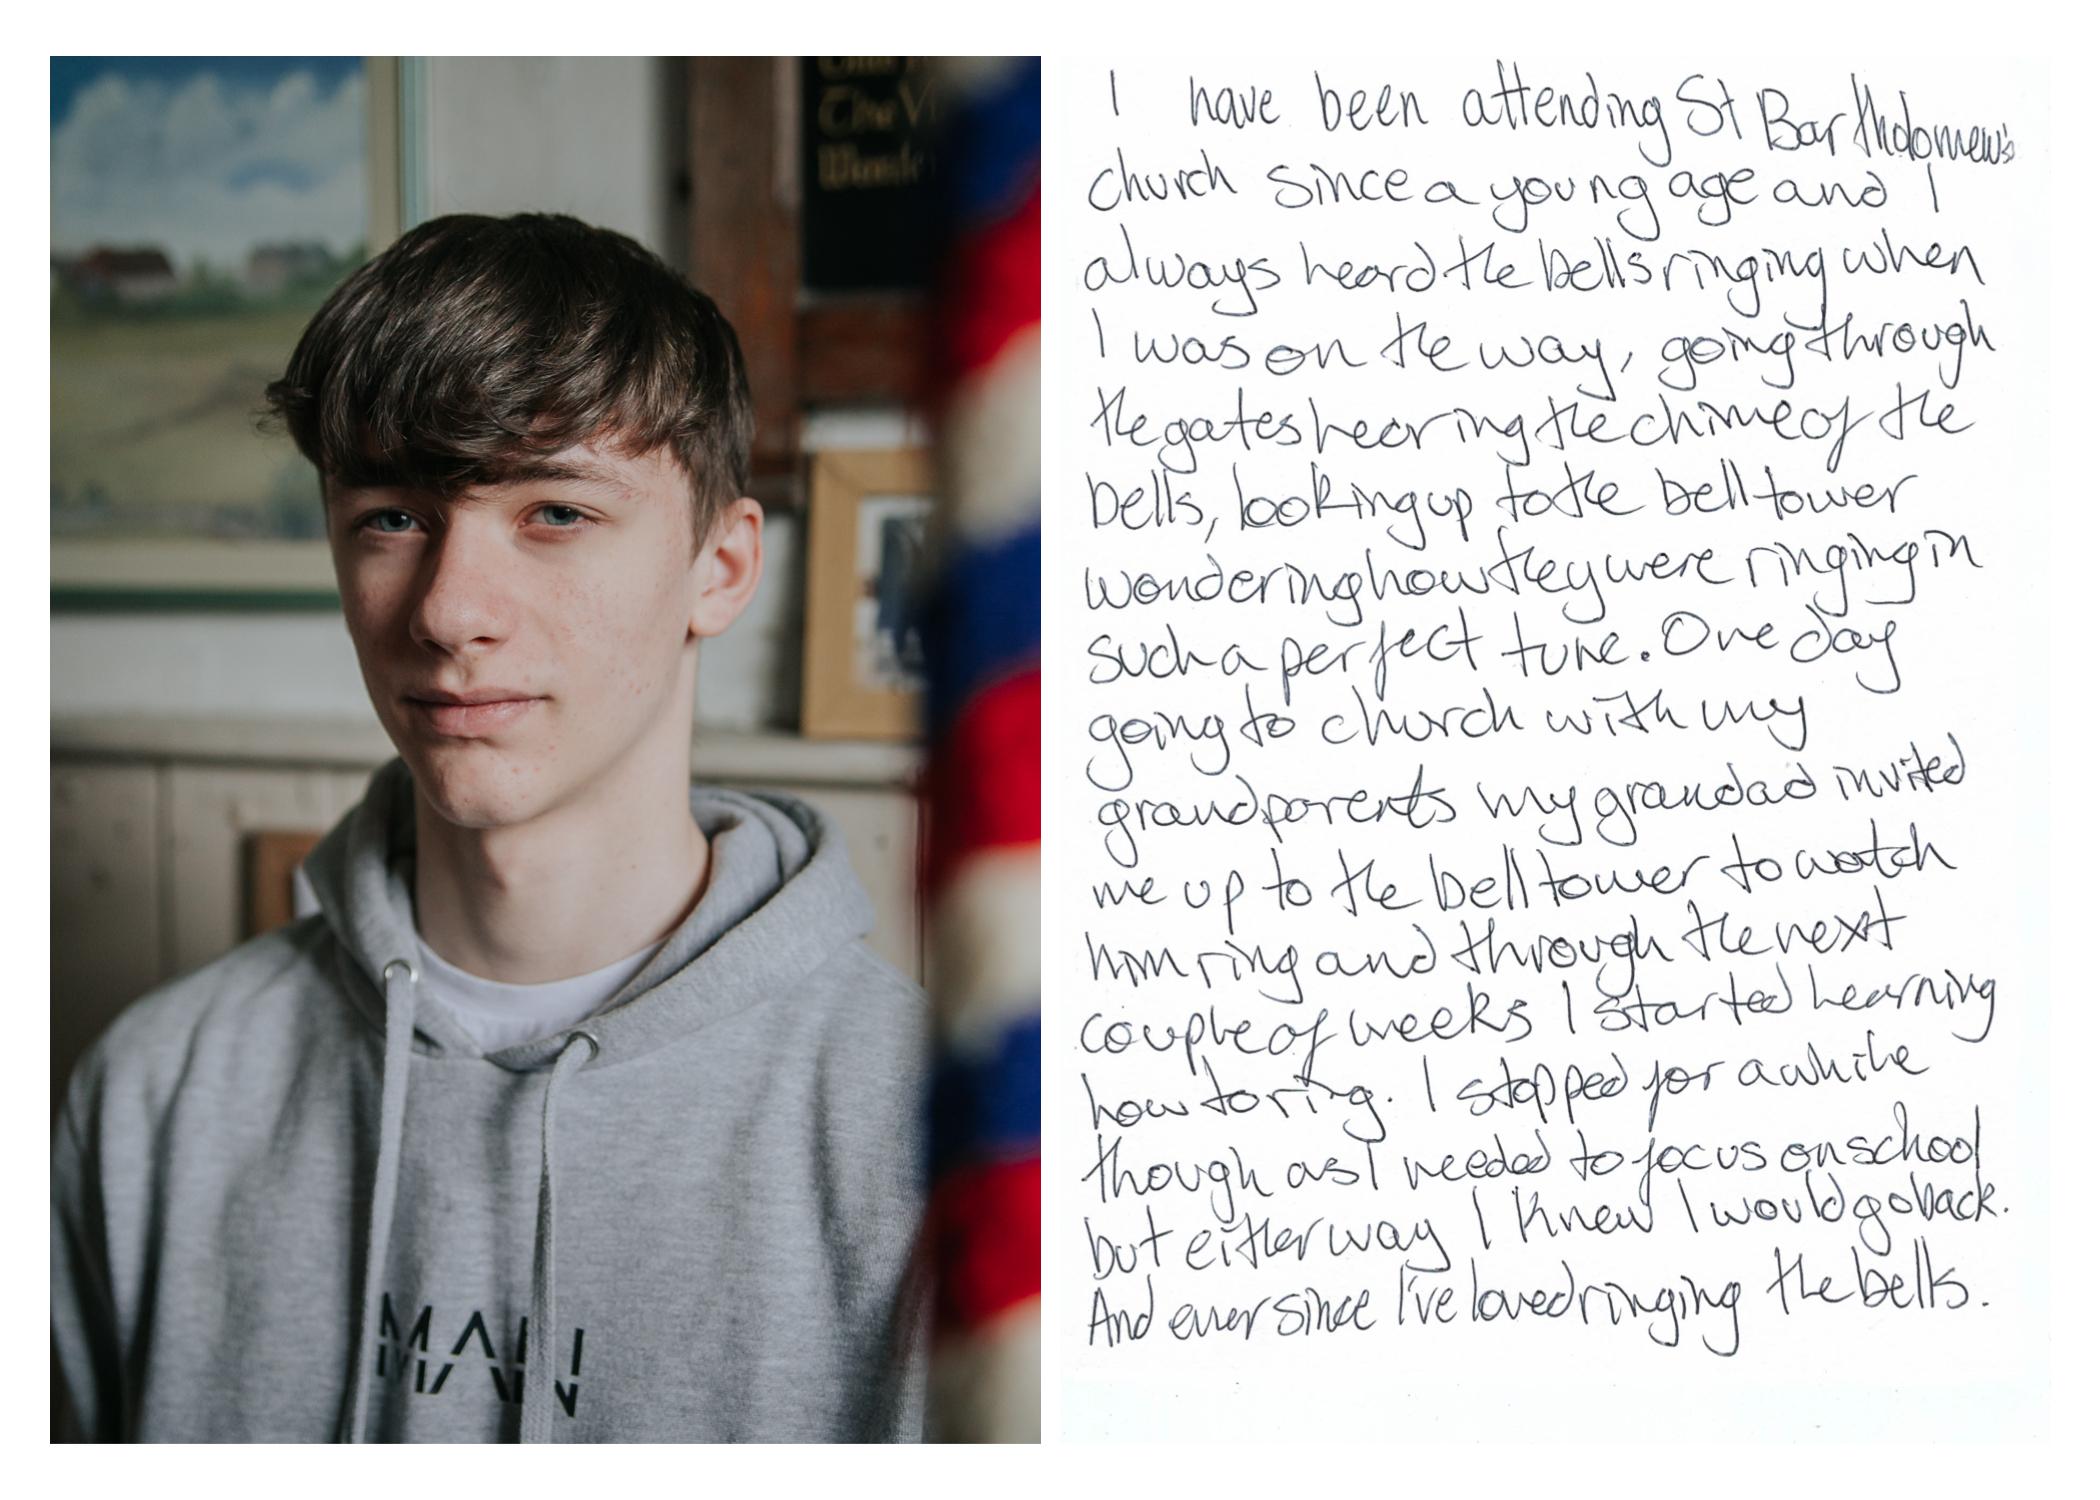 The Vi
MAN
I have been attending St Bartholomew's
church since a young age and I
always heard the bells ringing when
I was on the way, going through
the gates hearing the chime of the
bells, looking up to the bell tower
wondering how they were ringing in
such a perfect tune. One day
going to church with my
grandparents my grandad invited
me up to the bell tower to watch
him ring and through the next
couple of weeks I started learning
how to ring. I stopped for a while
though as I needed to focus on school
but either way I knew I would go back.
And ever since I've loved ringing the bells.